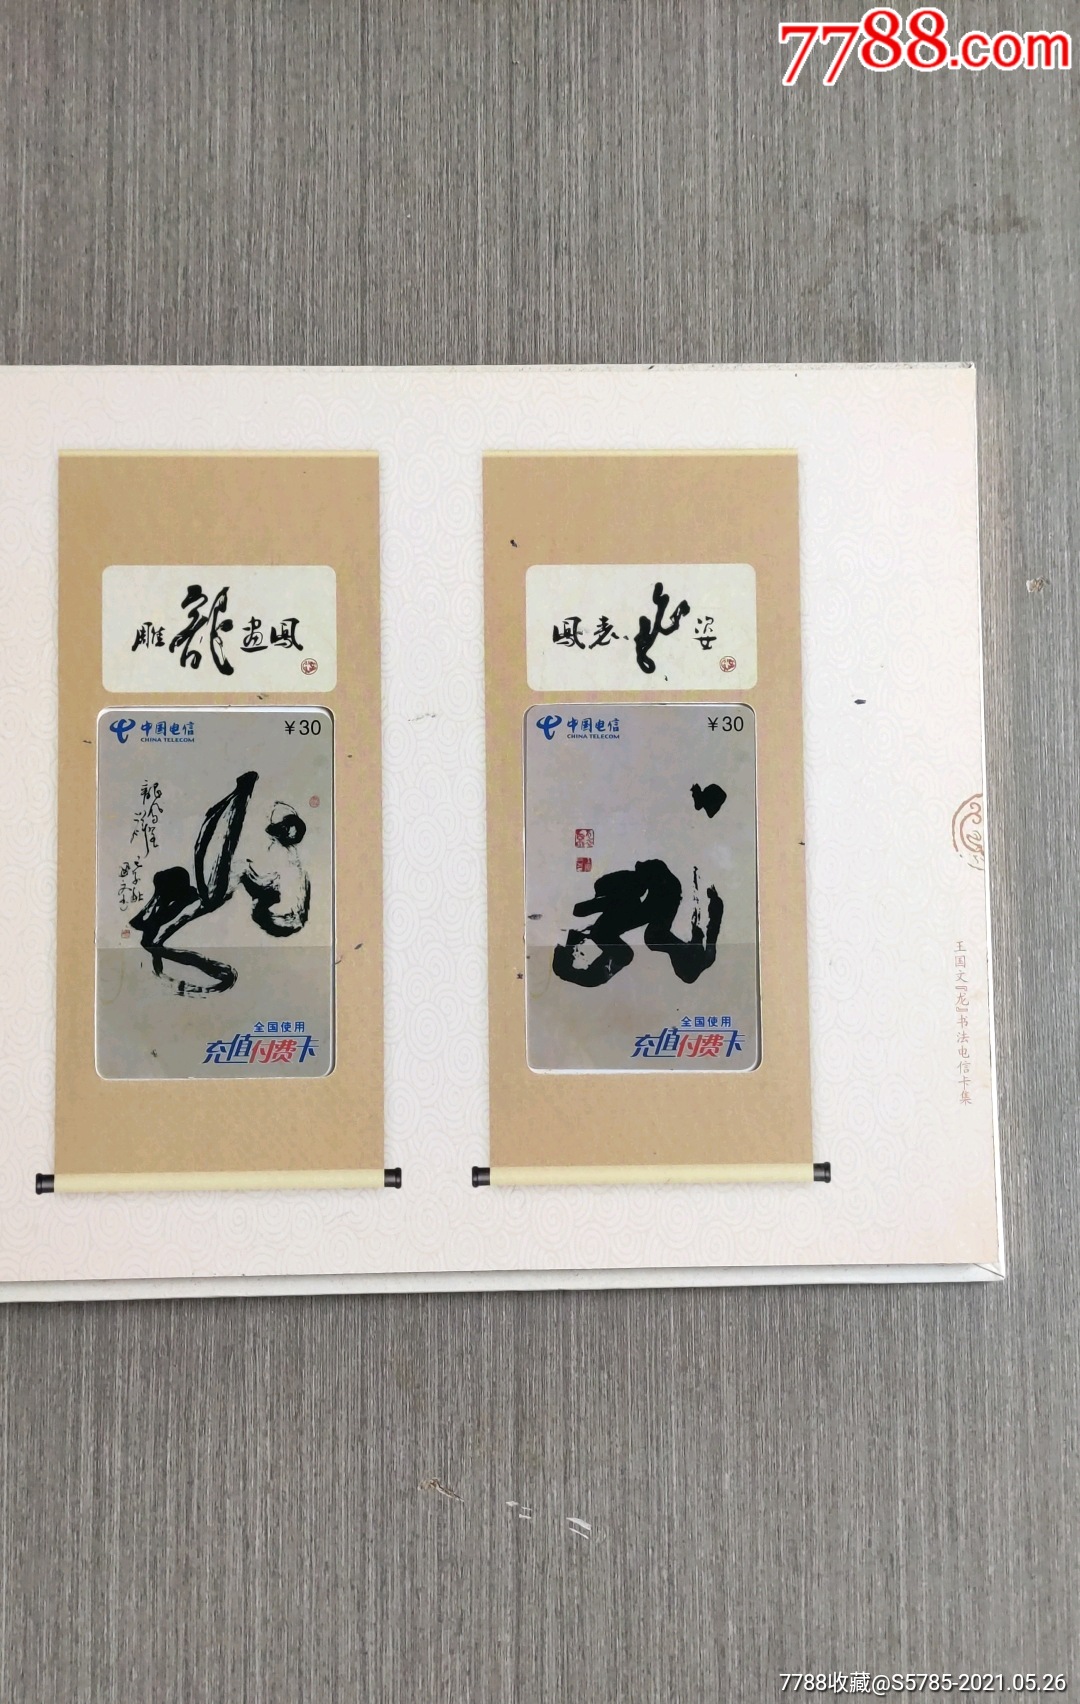 7788.com
雕龍畫鳳
中国电信
CHINA TELECOM
¥30
全国使用
充值付费卡
鳳表龍姿
中国电信
CHINA TELECOM
¥30
全国使用
充值付费卡
王国文『龙』书法电信卡集
7788收藏@S5785-2021.05.26